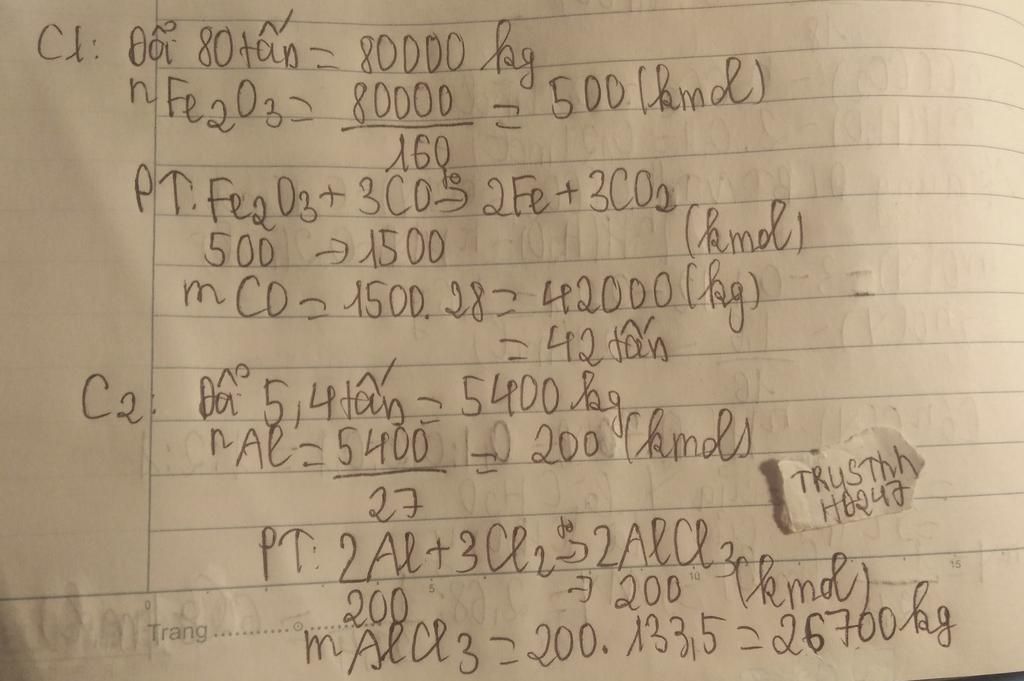 C1: Đổi 80 tấn = 80000 kg
nFe2O3 = 80000 = 500 (kmol)
160
PT: Fe2O3 + 3CO t°→ 2Fe + 3CO2
500 → 1500 (kmol)
mCO = 1500. 28 = 42000 (kg) =
= 42 tấn
C2: Đổi 5,4 tấn = 5400 kg
nAl = 5400 = 200 (kmol)
27
TRYSThh
HĐ247
PT: 2Al + 3Cl2 t°→ 2AlCl3
200 → 200 (kmol)
Trang
mAlCl3 = 200. 133,5 = 26700 kg